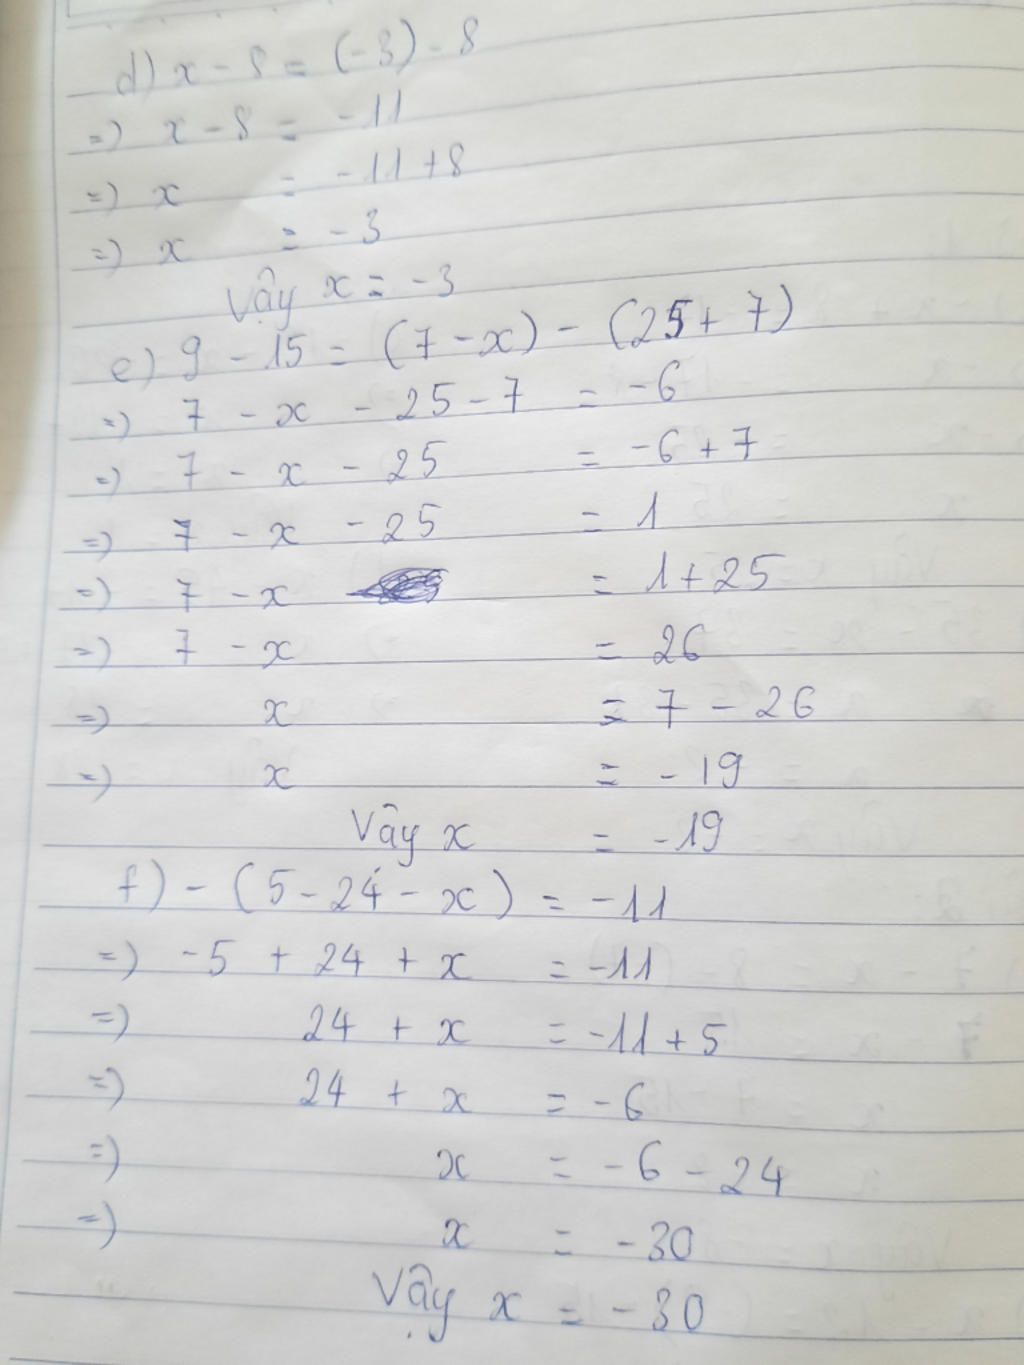 d) x - 8 = (-3) - 8
=) x - 8 = -11
=) x = -11 + 8
=) x = -3
Vậy x = -3
e) 9 - 15 = (7 - x) - (25 + 7)
=) 7 - x - 25 - 7 = -6
=) 7 - x - 25 = -6 + 7
=) 7 - x - 25 = 1
=) 7 - x = 1 + 25
=) 7 - x = 26
=) x = 7 - 26
=) x = -19
Vậy x = -19
f) - (5 - 24 - x) = -11
=) -5 + 24 + x = -11
=) 24 + x = -11 + 5
=) 24 + x = -6
=) x = -6 - 24
=) x = -30
Vậy x = -30